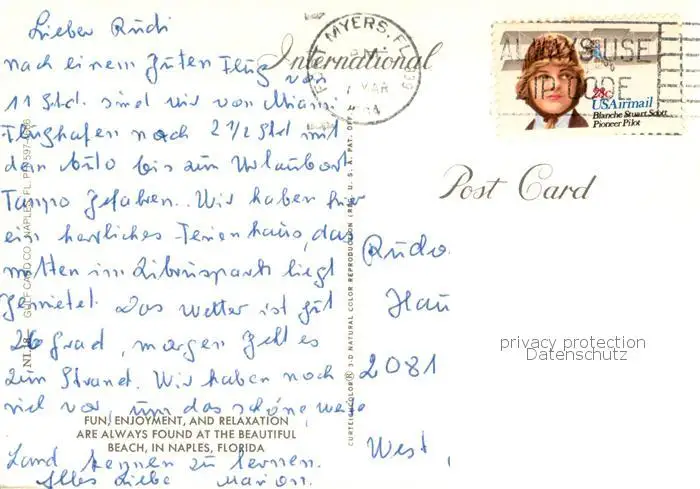 Lieber Rudi
nach einem guten Flug von
11 Std. sind wir von Miami
Flughafen noch 2 1/2 Std mit
dem Auto bis zum Urlaubsort
gefahren. Wir haben hier
ein herrliches Ferienhaus, das
mitten im liegt
gemietet. Das Wetter ist gut
26 Grad, morgen geht es
zum Strand. Wir haben noch
viel vor, um das schöne, weite
Land kennen zu lernen.
Alles Liebe Marion.
FUN, ENJOYMENT, AND RELAXATION
ARE ALWAYS FOUND AT THE BEAUTIFUL
BEACH, IN NAPLES, FLORIDA
NI.18 GULF CARD CO., NAPLES, FL.
CURTEICHCOLOR® 3-D NATURAL COLOR REPRODUCTION (REG. U.S.A. PAT. OFF.)
International
FORT MYERS, FL 339
MAR
ALWAYS USE
ZIP CODE
28c
USAirmail
Blanche Stuart Scott
Pioneer Pilot
Post Card
Rudo
Hau
2081
West
privacy protection
Datenschutz